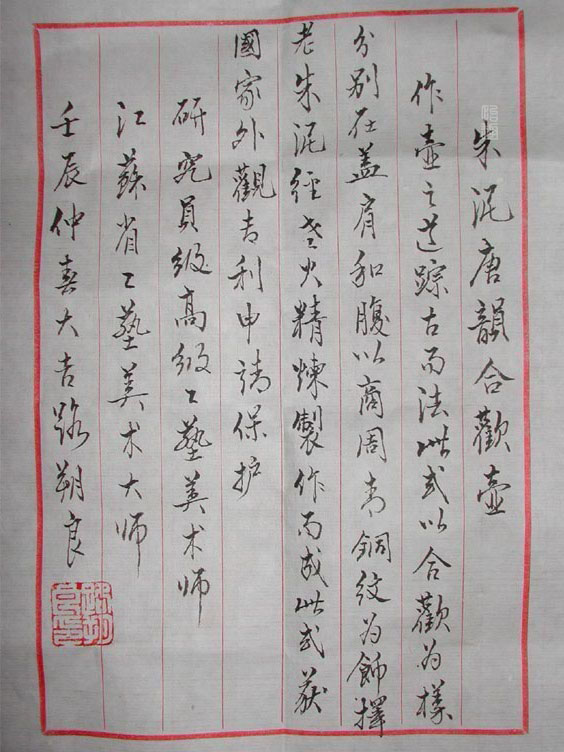 朱泥唐韻合歡壶
作壶之道踪古而法此式以合歡为樣
分别在盖肩和腹以商周青銅纹为飾擇
老朱泥經窑火精煉製作而成此式获
國家外觀专利申請保护
研究员级高级工藝美术师
江蘇省工藝美术大师
壬辰仲春大吉路朔良